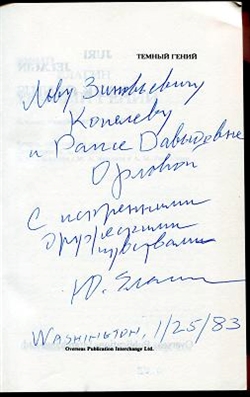 ТЕМНЫЙ ГЕНИЙ
Льву Зиновьевичу
Копелеву
и Раисе Давыдовне
Орловой
С искренними
дружескими
чувствами
Ю.
WASHINGTON, 1/25/83
Overseas Publication Interchange Ltd.